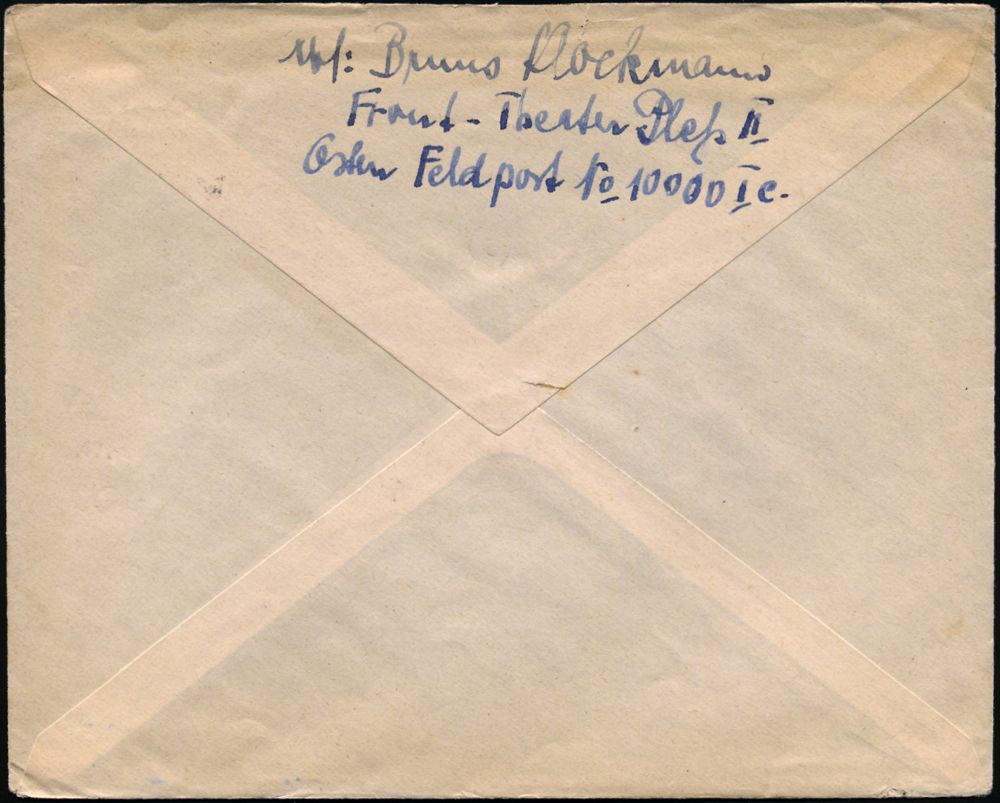 Abs: Bruno Klockmann
Front-Theater Pleß II
Osten Feldpost No 10000 I c.